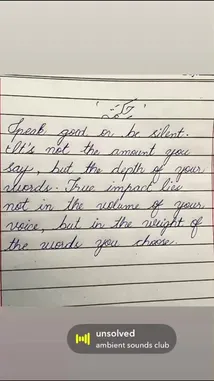 Speak good or be silent.
It's not the amount you
say, but the depth of your
words. True impact lies
not in the volume of your
voice, but in the weight of
the words you choose.
unsolved
ambient sounds club